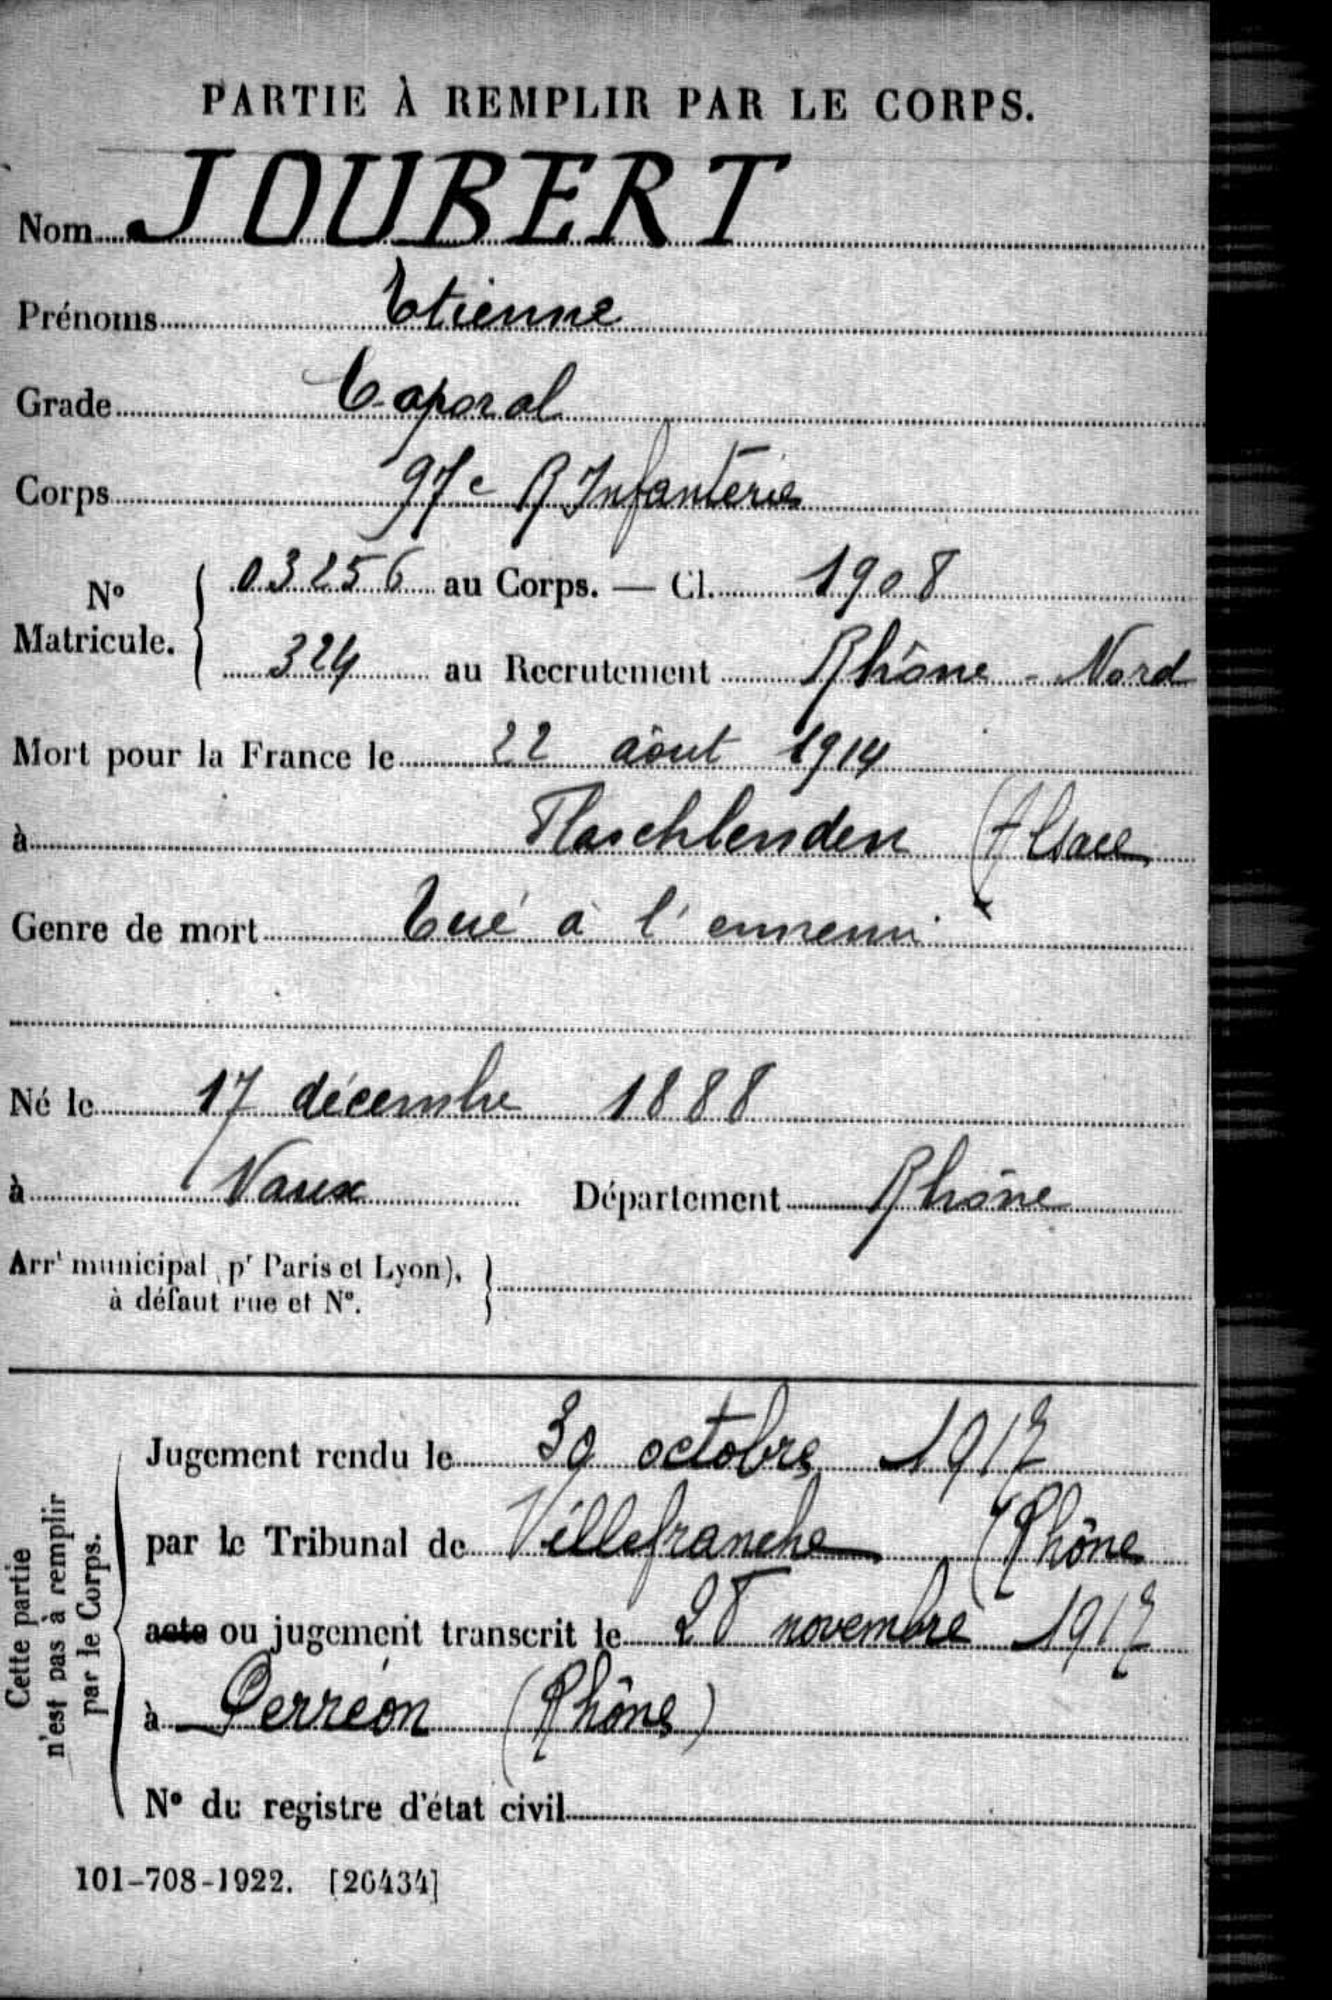 PARTIE À REMPLIR PAR LE CORPS.
Nom JOUBERT
Prénoms Etienne
Grade Caporal
Corps 97e R Infanterie
N° Matricule. 03256 au Corps. — Cl. 1908
324 au Recrutement Rhône - Nord
Mort pour la France le 22 août 1914
à Flaschlenden (Alsace
Genre de mort Tué à l'ennemi
Né le 17 décembre 1888
à Vaux Département Rhône
Arrt municipal (pr Paris et Lyon),
à défaut rue et N°.
Cette partie
n'est pas à remplir
par le Corps.
Jugement rendu le 30 octobre 1917
par le Tribunal de Villefranche (Rhône
acte ou jugement transcrit le 28 novembre 1917
à Perréon (Rhône)
N° du registre d'état civil
101-708-1922. [26434]